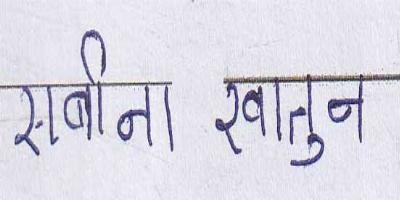 सबीना खातुन